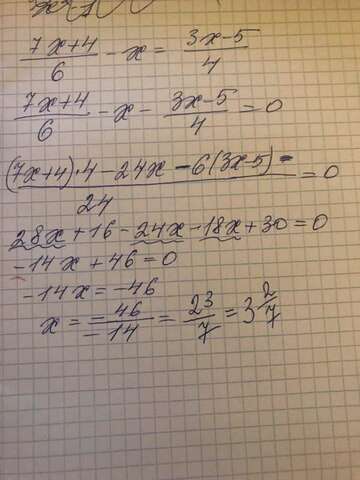 (7x+4)/6 - x = (3x-5)/4
(7x+4)/6 - x - (3x-5)/4 = 0
((7x+4)·4 - 24x - 6(3x-5))/24 = 0
28x + 16 - 24x - 18x + 30 = 0
-14x + 46 = 0
-14x = -46
x = -46/-14 = 23/7 = 3 2/7